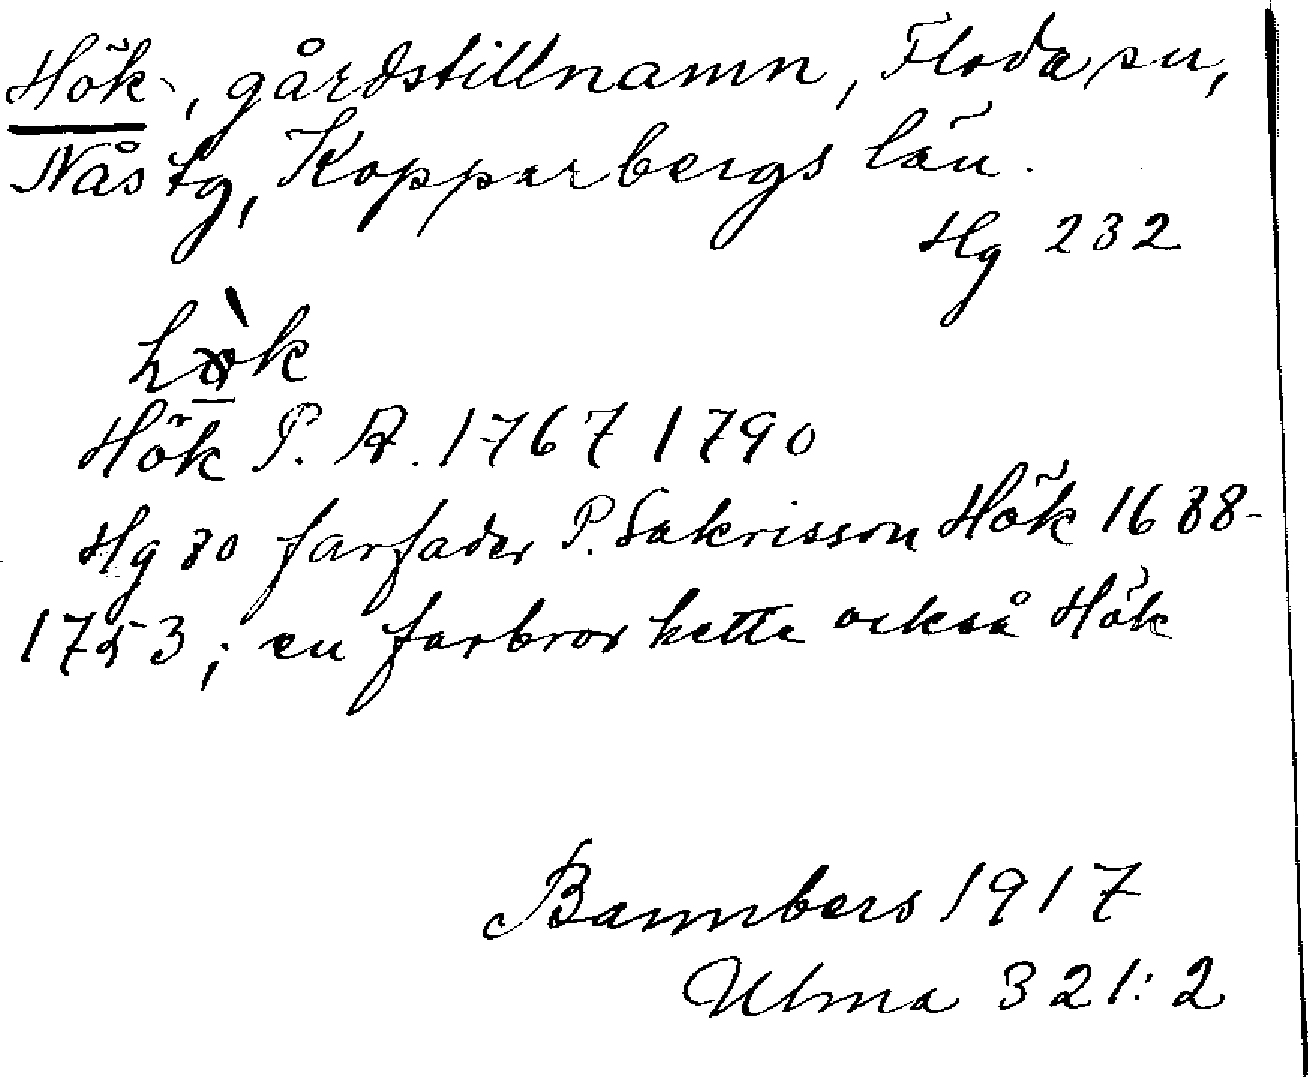 Hök-, gårdstillnamn, Floda sn,
Nås tg, Kopparbergs län.
Hg 232
hø̀k
Hök P. A. 1767 1790
Hg 80 farfader P. Sakrisson Hök 1688-
1753; en farbror hette också Hök
Bannbers 1917
Ulma 321:2